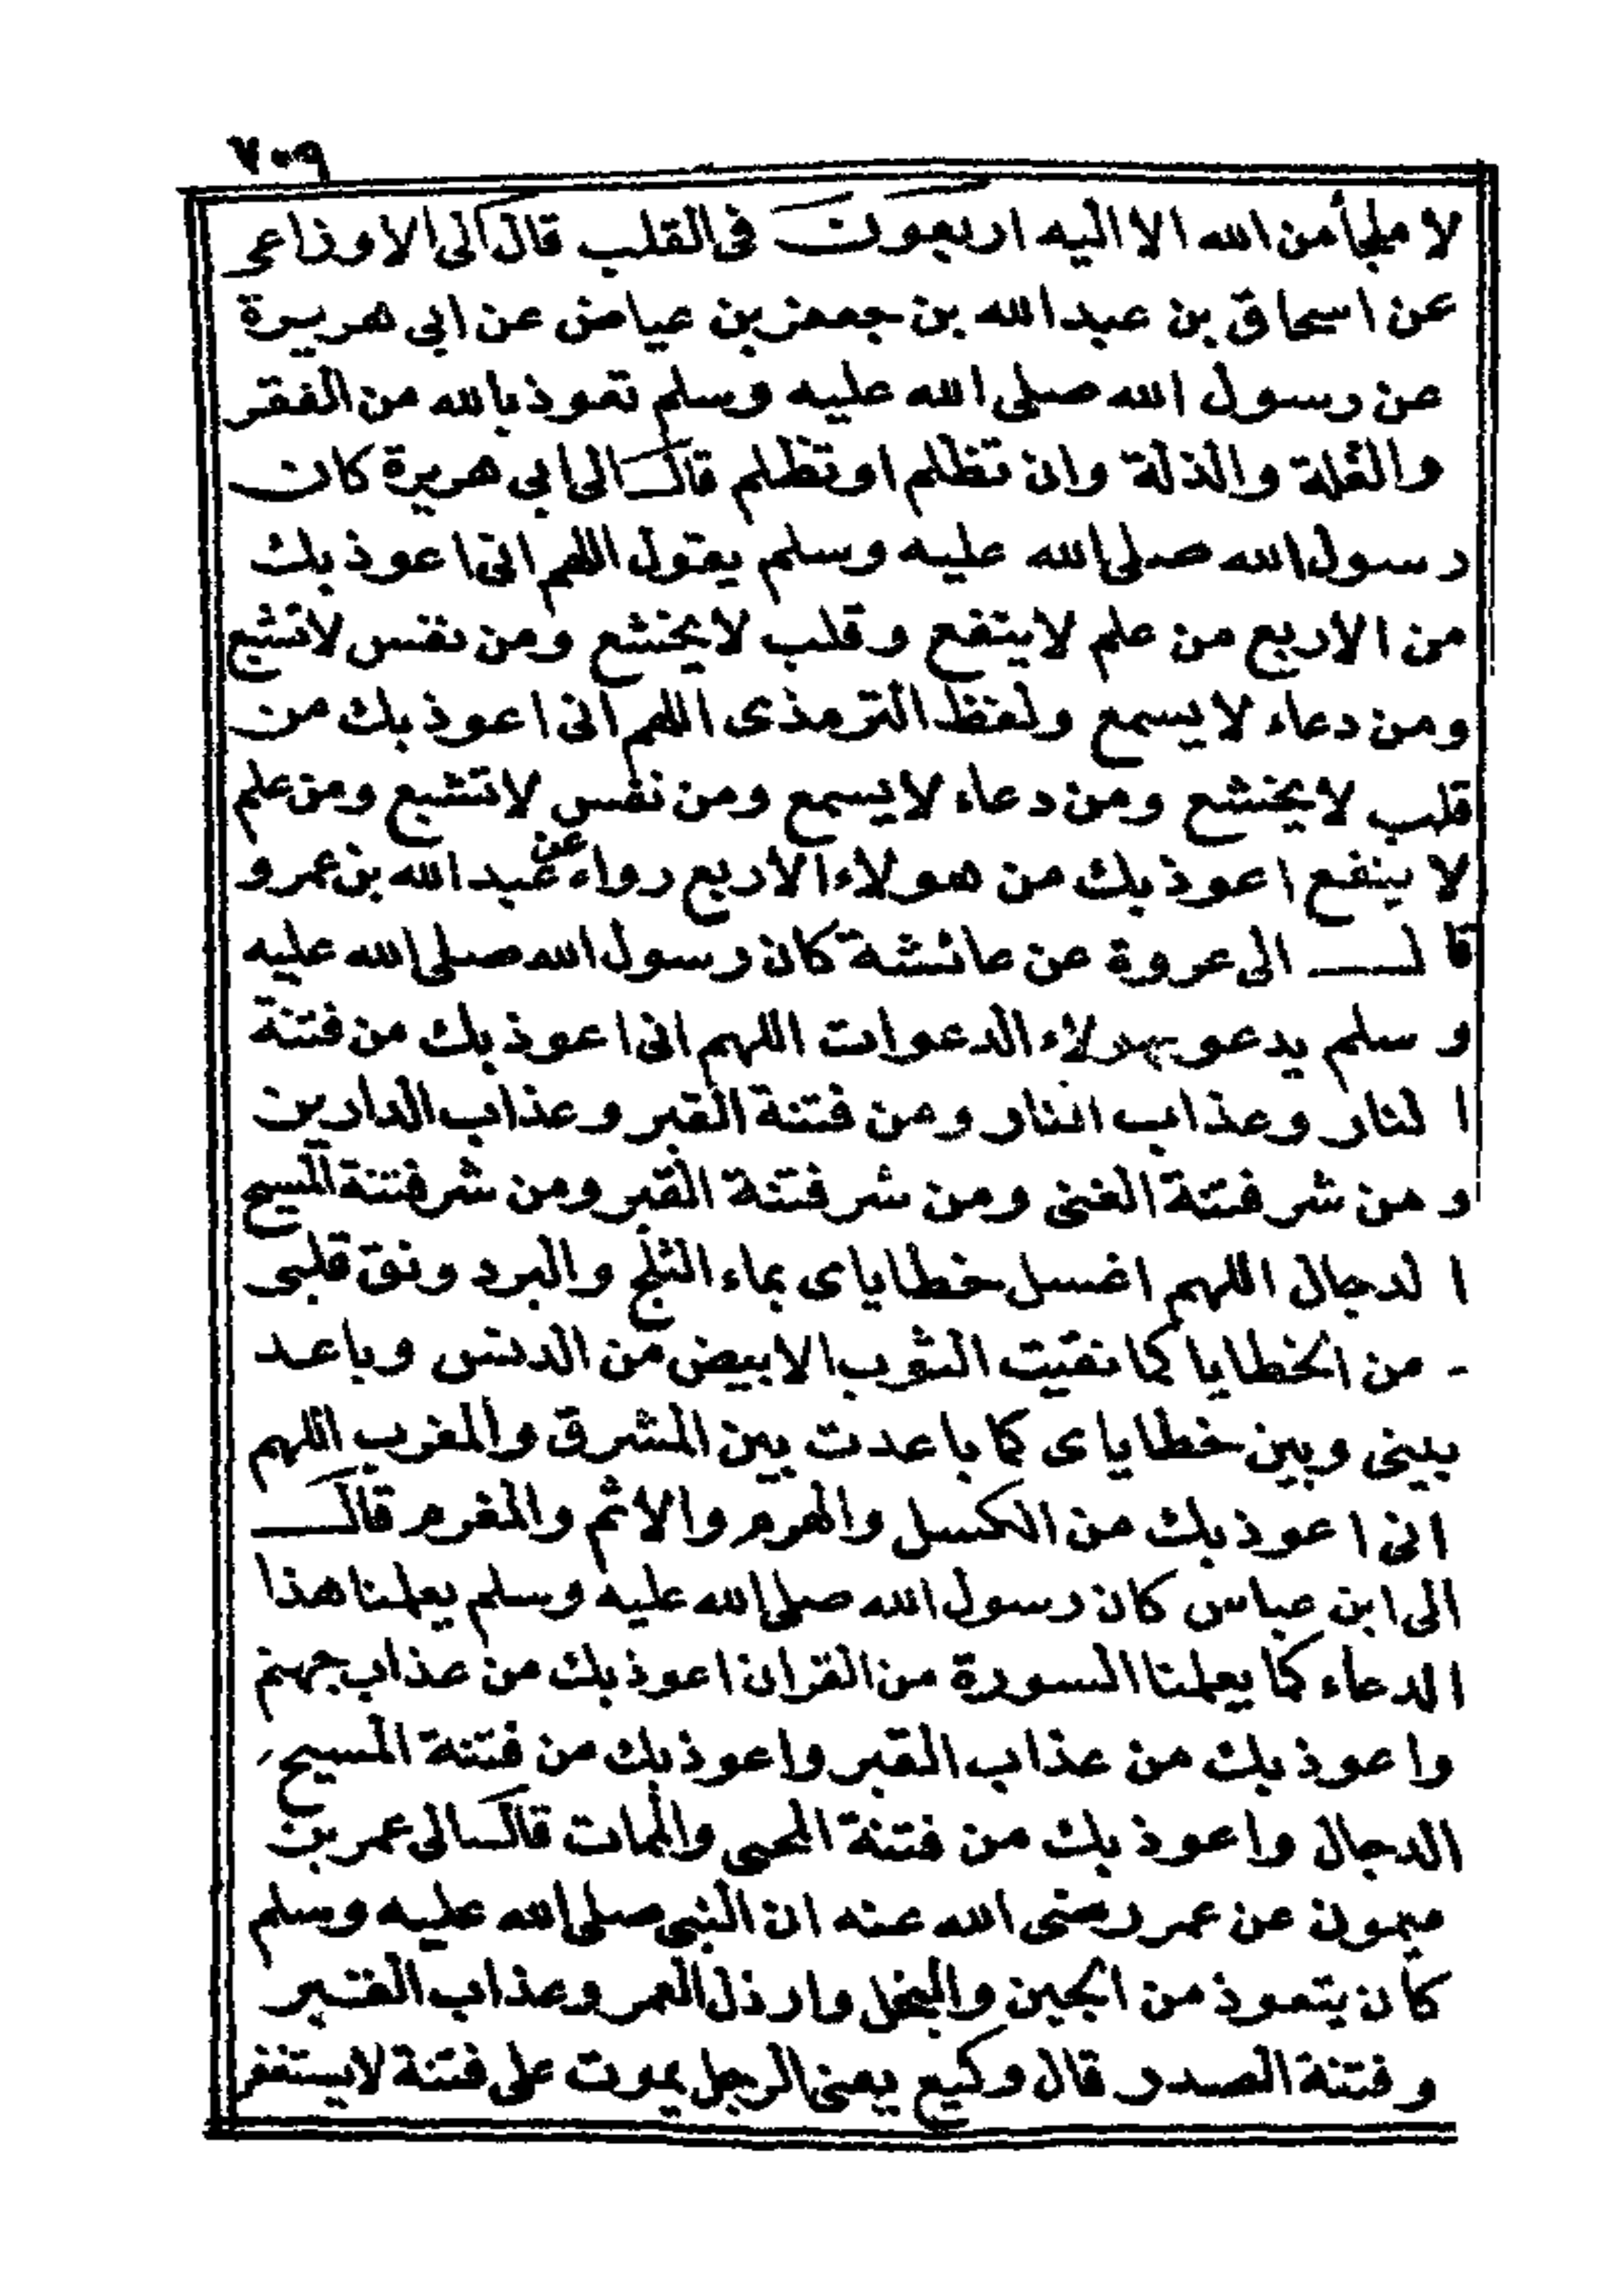 ٧٠٩
لا ملجأ من الله الا اليه اربعون فى القلب قال الى الاوزاعى
عن اسحاق بن عبد الله بن جعفر بن عياض عن ابى هريرة
عن رسول الله صلى الله عليه وسلم تعوذ بالله من الفقر
والقلة والذلة وان تظلم او تظلم قال الى ابى هريرة كان
رسول الله صلى الله عليه وسلم يقول اللهم انى اعوذ بك
من الاربع من علم لا ينفع وقلب لا يخشع ومن نفس لا تشبع
ومن دعاء لا يسمع ولفظ الترمذى اللهم انى اعوذ بك من
قلب لا يخشع ومن دعاء لا يسمع ومن نفس لا تشبع ومن علم
لا ينفع اعوذ بك من هولاء الاربع رواه عن عبد الله بن عمرو
قال الى عروة عن عائشة كان رسول الله صلى الله عليه
وسلم يدعو بهولاء الدعوات اللهم انى اعوذ بك من فتنة
النار وعذاب النار ومن فتنة القبر وعذاب الدارين
ومن شر فتنة الغنى ومن شر فتنة القبر ومن شر فتنة المسيح
الدجال اللهم اغسل خطاياى بماء الثلج والبرد ونق قلبى
من الخطايا كما نقيت الثوب الابيض من الدنس وباعد
بينى وبين خطاياى كما باعدت بين المشرق والمغرب اللهم
انى اعوذ بك من الكسل والهرم والاثم والمغرم قال
الى ابن عباس كان رسول الله صلى الله عليه وسلم يعلمنا هذا
الدعاء كما يعلمنا السورة من القران اعوذ بك من عذاب جهنم
واعوذ بك من عذاب القبر واعوذ بك من فتنة المسيح
الدجال واعوذ بك من فتنة المحيى والممات قال الى عمر بن
ميمون عن عمر رضى الله عنه ان النبى صلى الله عليه وسلم
كان يتعوذ من الجبن والبخل وارذل العمر وعذاب القبر
وفتنة الصدر قال وكيع يعنى الرجل يموت على فتنة لا يستغفر